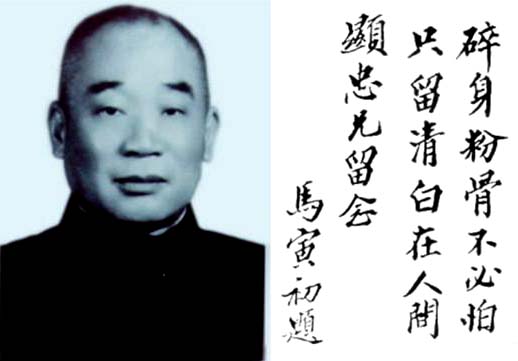 碎身粉骨不必怕
只留清白在人間
顯忠兄留念
馬寅初題